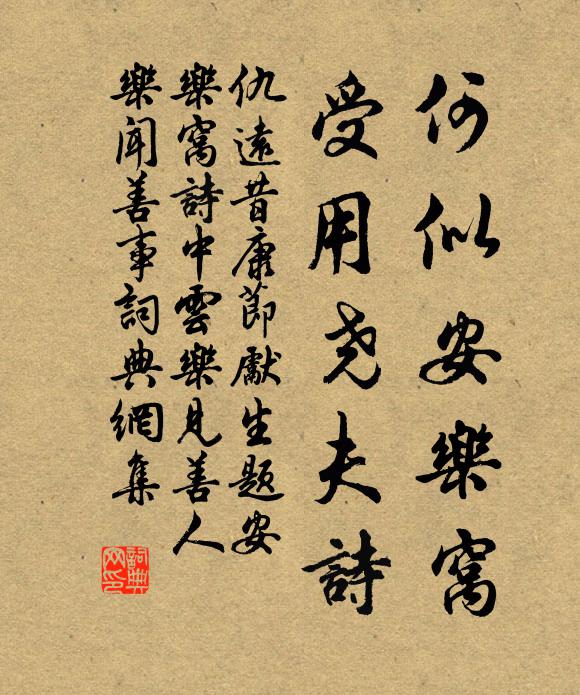 何似安樂窩
受用尧夫詩
仇遠昔康節獻生题安
樂窩詩中雲樂見善人
樂聞善事詞典網集
詞典网印